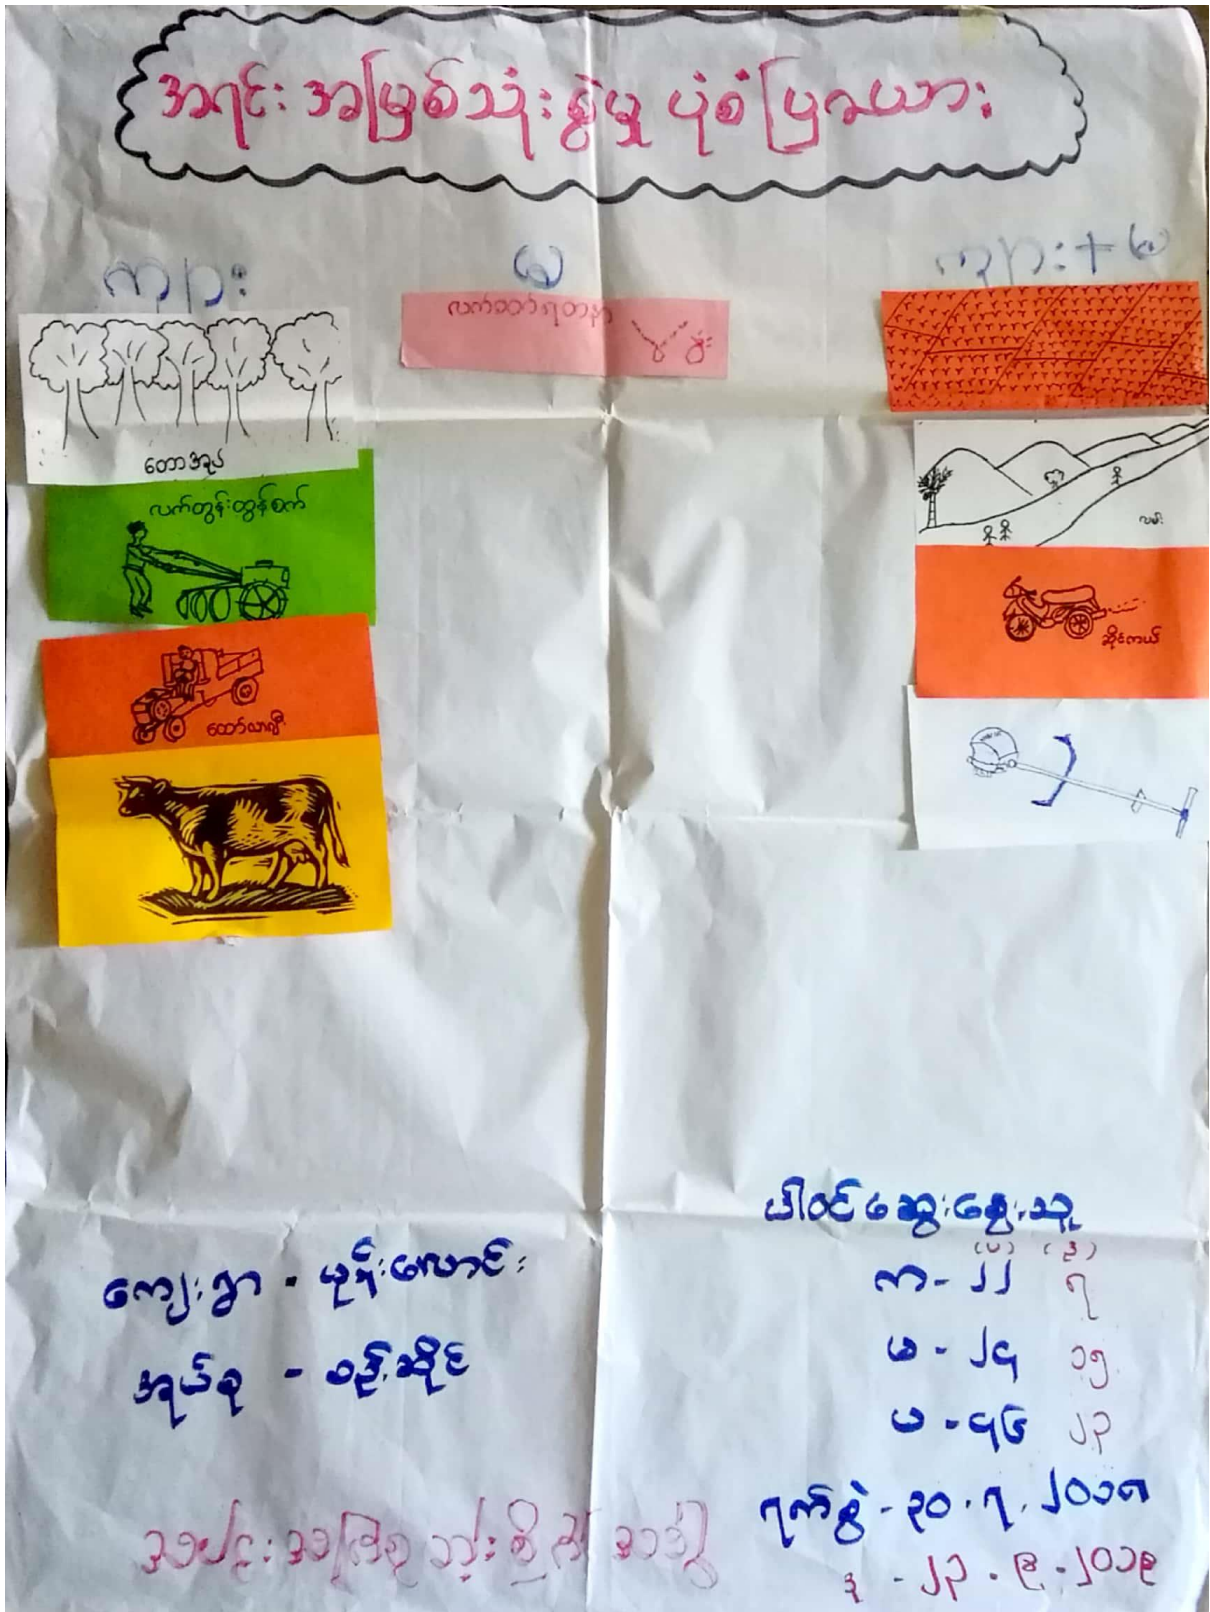 အရင်းအမြစ်သုံးစွဲမှု ပုံစံပြဇယား
ကျား
မ
ကျား+မ
လက်ဝတ်ရတနာ
တောအုပ်
လက်တွန်းထွန်စက်
ထော်လာဂျီ
လမ်း
ဆိုင်ကယ်
ပါဝင်ဆွေးနွေးသူ
(ပ) (ဒု)
ကျေးရွာ -
က - ၂၂ ၇
အုပ်စု -
မ - ၂၄ ၁၅
ပ - ၄၆ ၂၃
ရက်စွဲ - ၃၀.၇.၂၀၁၈
ဒု - ၂၃.၉.၂၀၁၉